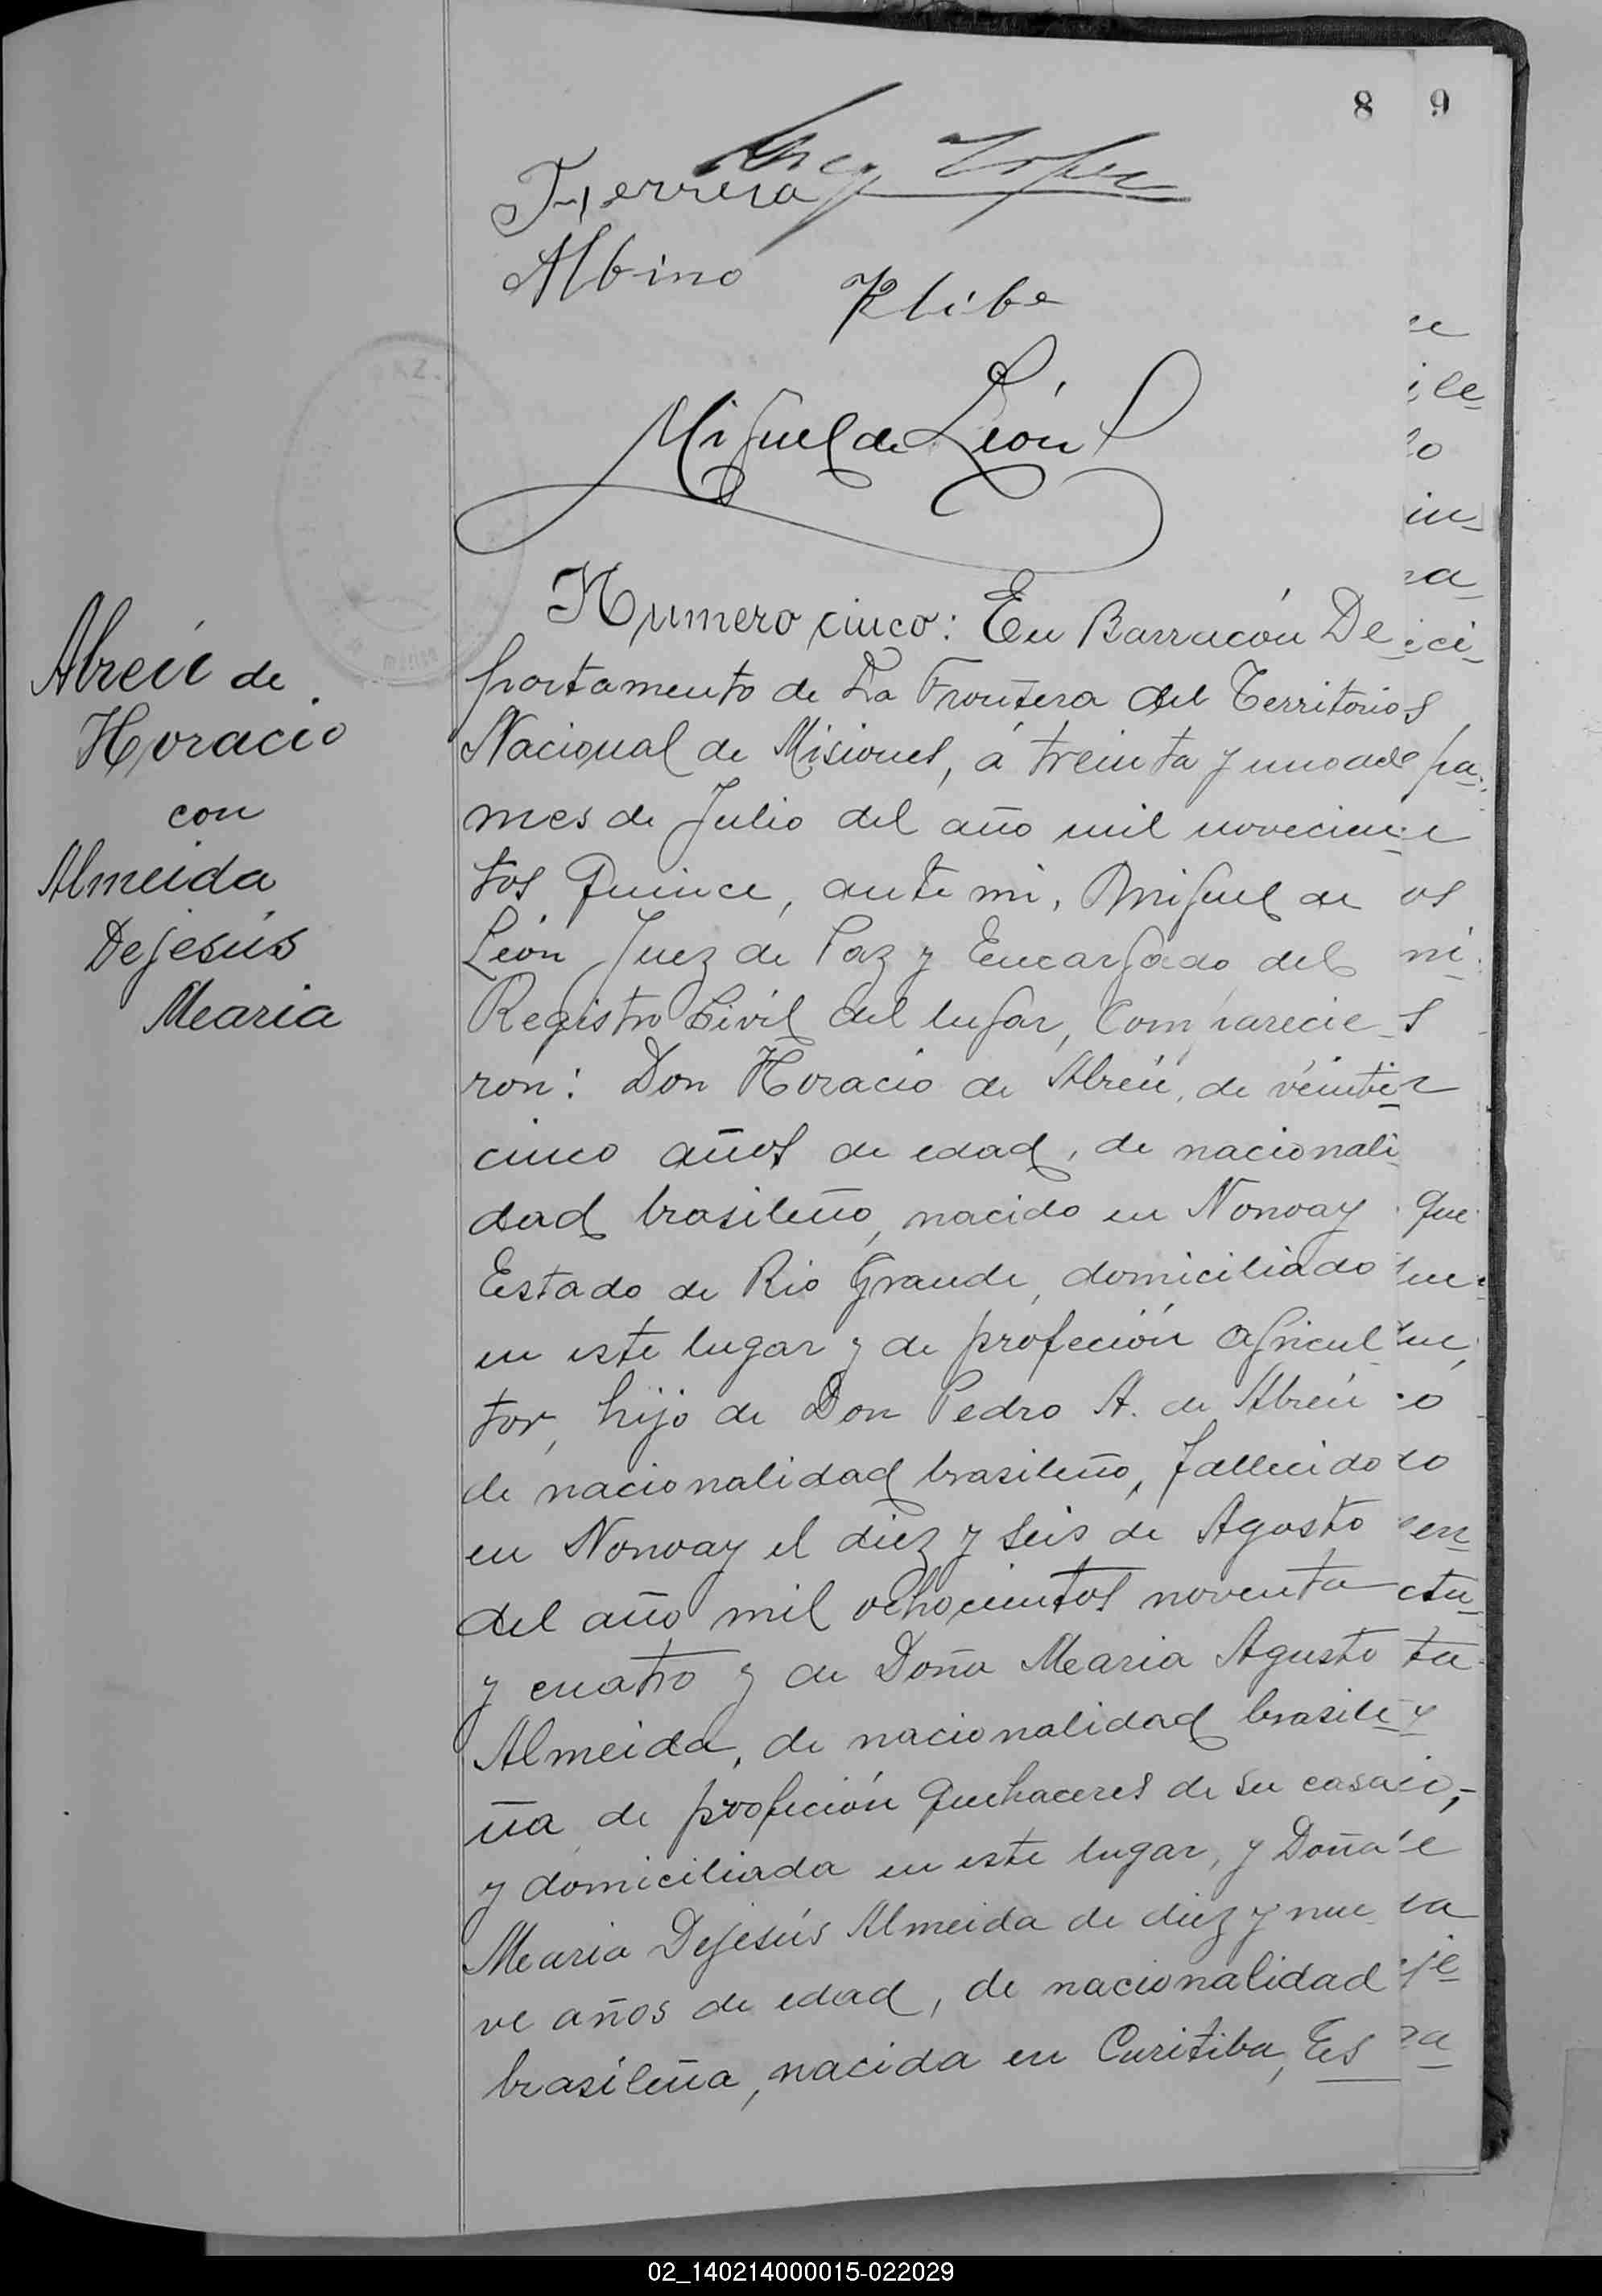 8 9
Ferrera
Albino
Klibe
Miguel de León
Abreú de
Horacio
con
Almeida
Dejesús
Maria
Numero cinco: En Barracón De
partamento de La Frontera del Territorio
Nacional de Misiones, á treinta y uno del
mes de Julio del año mil novecien
tos quince, ante mi, Miguel de
León Juez de Paz y Encargado del
Registro Civil del lugar, Comparecie
ron: Don Horacio de Abreú, de veinti
cinco años de edad, de nacionali
dad brasileño, nacido en Nonoay
Estado de Rio Grande, domiciliado
en este lugar y de profeción agricul
tor, hijo de Don Pedro A. de Abreú
de nacionalidad brasileño, fallecido
en Nonoay el diez y seis de Agosto
del año mil ochocientos noventa
y cuatro y de Doña Maria Agusto
Almeida, de nacionalidad brasile
ña de profeción quehaceres de su casa
y domiciliada en este lugar, y Doña
Maria Dejesús Almeida de diez y nue
ve años de edad, de nacionalidad
brasileña, nacida en Curitiba, Es
02_140214000015-022029